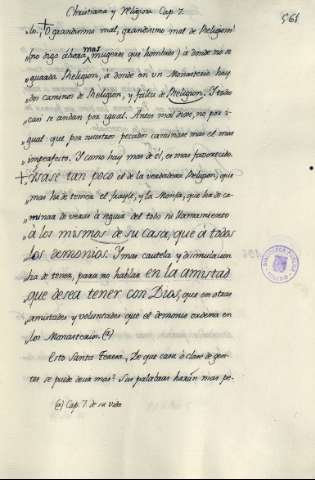 Christiana y Religiosa Cap. 7.
561
lo. O grandissimo mal, grandissimo mal de Religiosos
mas
(no digo ahora mugeres que hombres) à donde no se
guarda Religion, à donde en un Monasterio hay
dos caminos de Religion, y falta de Religion. Y todos
casi se andan por igual. Antes mal dixe, no por
igual: que por nuestros pecados caminase mas el mas
imperfecto. Y como hay mas de èl, es mas favorecido.
Usase tan poco el de la verdadera Religion, que
mas ha de temer el frayle, y la Monja, que ha de co-
menzar de veras à seguir del todo su llamamiento
à los mismos de su casa, que à todos
los demonios. Y mas cautela y disimulacion
ha de tener, para no hablar en la amistad
que desea tener con Dios, que en otras
amistades y voluntades que el demonio ordena en
los Monasterios. (a)
Esto Santa Teresa. De que casa ò clase de gen-
tes se puede decir mas? Sus palabras haràn mas pe-
(a) Cap. 7. de su vida